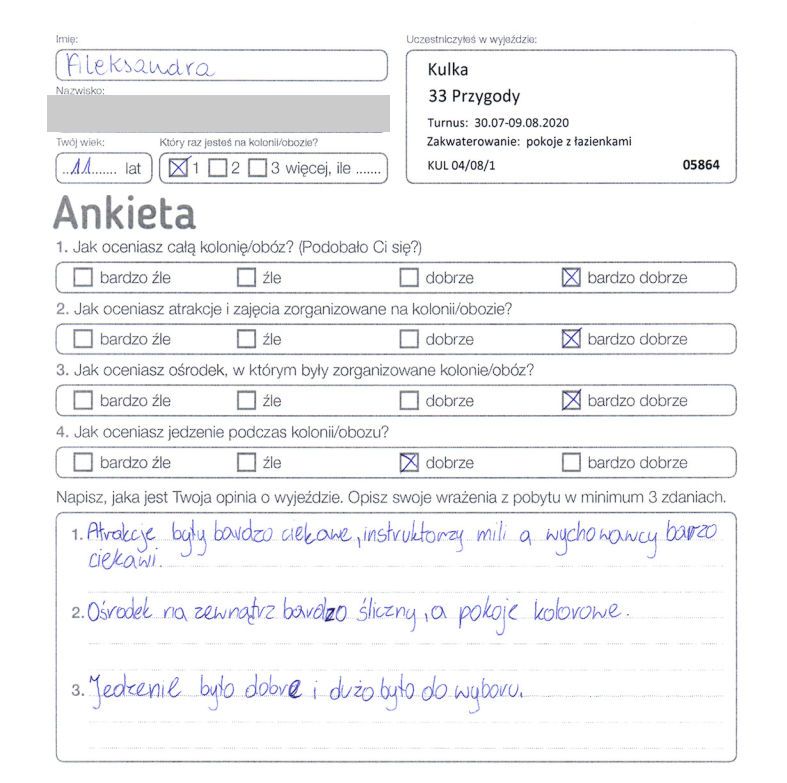 Imię:
Aleksandra
Nazwisko:
Twój wiek:
..11....... lat
Który raz jesteś na kolonii/obozie?
1 2 3 więcej, ile .......
Uczestniczyłeś w wyjeździe:
Kulka
33 Przygody
Turnus: 30.07-09.08.2020
Zakwaterowanie: pokoje z łazienkami
KUL 04/08/1 05864
Ankieta
1. Jak oceniasz całą kolonię/obóz? (Podobało Ci się?)
bardzo źle źle dobrze bardzo dobrze
2. Jak oceniasz atrakcje i zajęcia zorganizowane na kolonii/obozie?
bardzo źle źle dobrze bardzo dobrze
3. Jak oceniasz ośrodek, w którym były zorganizowane kolonie/obóz?
bardzo źle źle dobrze bardzo dobrze
4. Jak oceniasz jedzenie podczas kolonii/obozu?
bardzo źle źle dobrze bardzo dobrze
Napisz, jaka jest Twoja opinia o wyjeździe. Opisz swoje wrażenia z pobytu w minimum 3 zdaniach.
1. Atrakcje były bardzo ciekawe, instruktorzy mili a wychowawcy barzo
ciekawi.
2. Ośrodek na zewnątrz bardzo śliczny, a pokoje kolorowe.
3. Jedzenie było dobre i dużo było do wyboru.